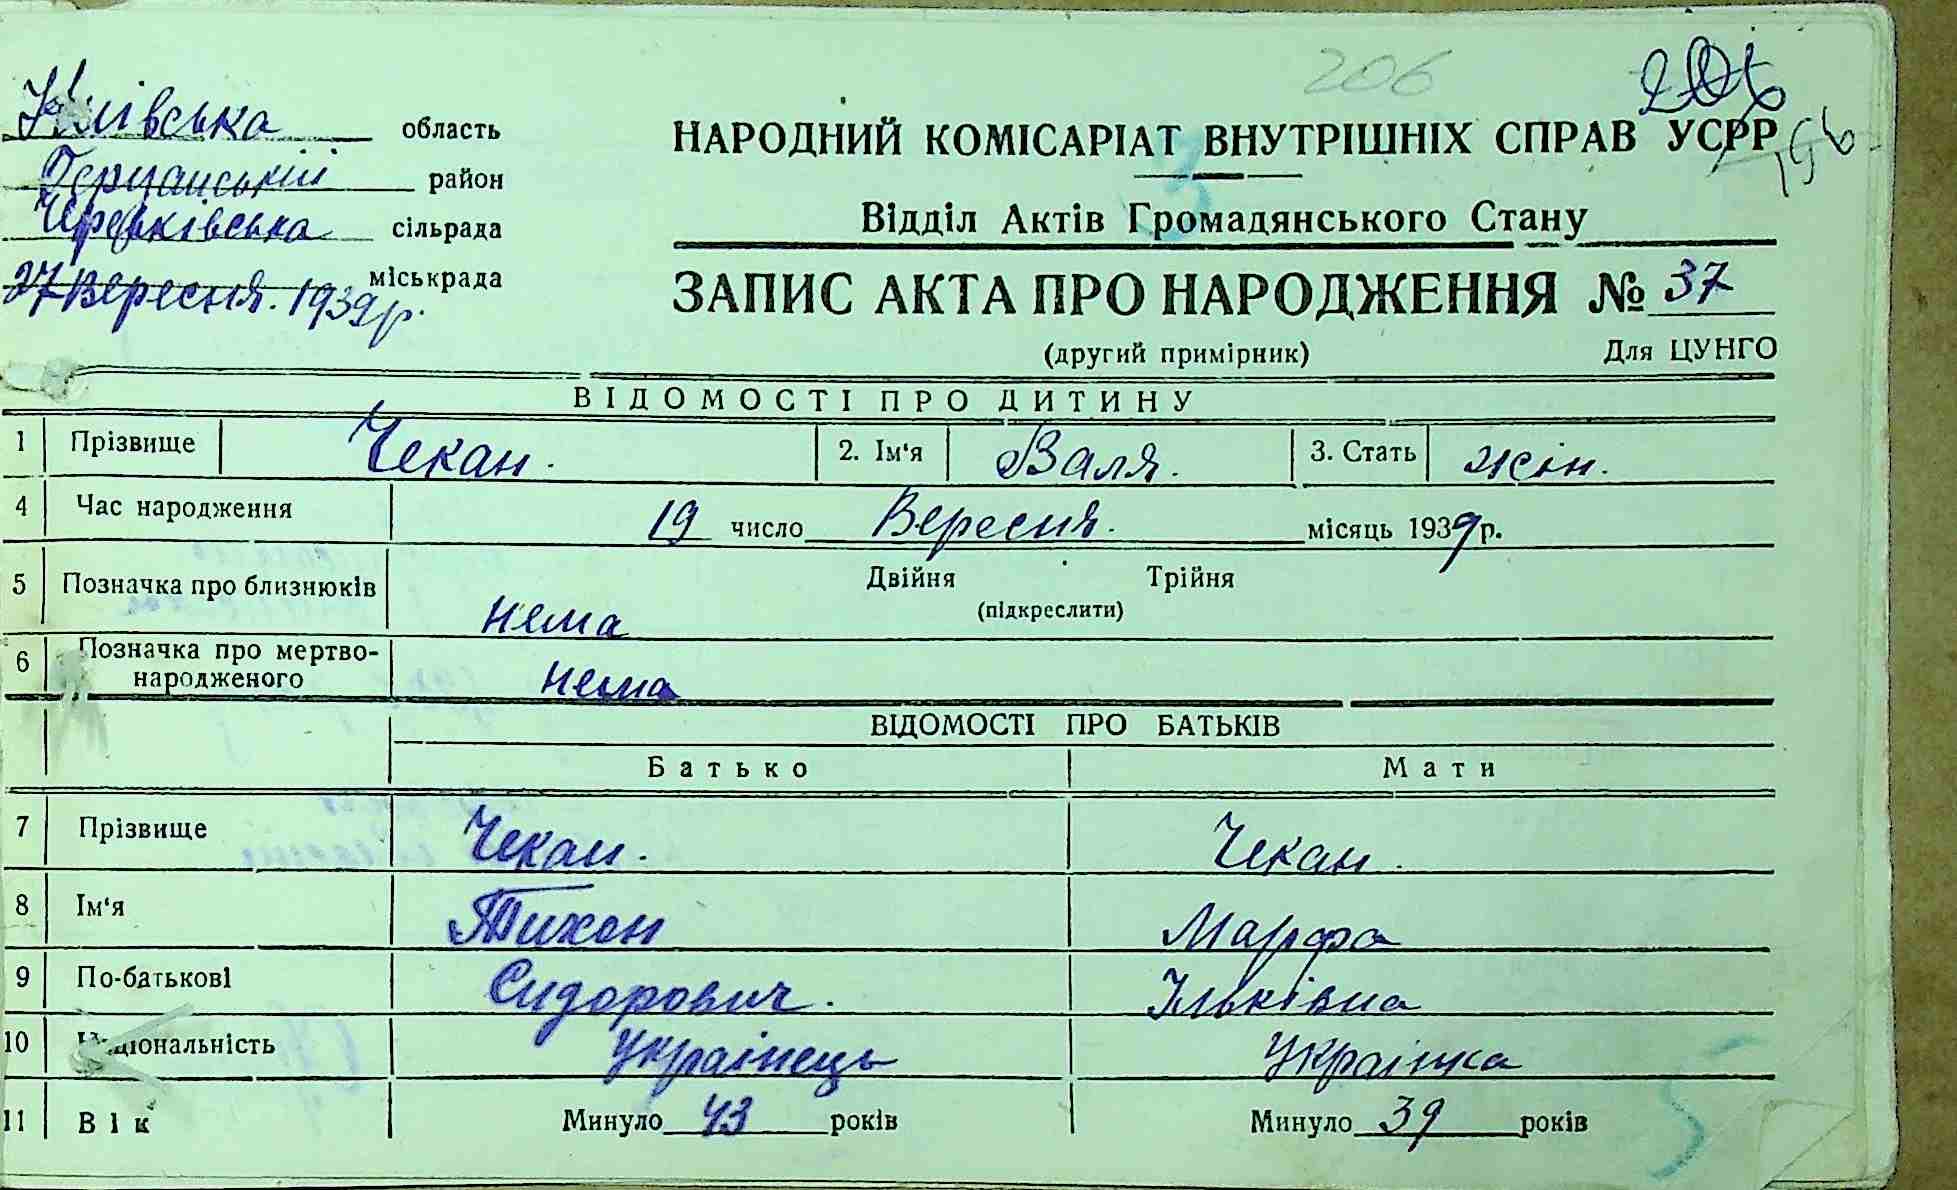 206
Київська область
район
сільрада
міськрада
27 Вересня. 1939 р.
НАРОДНИЙ КОМІСАРІАТ ВНУТРІШНІХ СПРАВ УСРР
Відділ Актів Громадянського Стану
ЗАПИС АКТА ПРО НАРОДЖЕННЯ № 37
(другий примірник) Для ЦУНГО
ВІДОМОСТІ ПРО ДИТИНУ
1 Прізвище Чекан. 2. Ім'я Валя. 3. Стать жін.
4 Час народження 19 число Вересня. місяць 1939 р.
5 Позначка про близнюків нема Двійня Трійня
(підкреслити)
6 Позначка про мертво-
народженого нема
ВІДОМОСТІ ПРО БАТЬКІВ
Батько Мати
7 Прізвище Чекан. Чекан.
8 Ім'я Тихон Марфа
9 По-батькові Сидорович. Ільківна
10 Національність Українець Українка
11 Вік Минуло 43 років Минуло 39 років